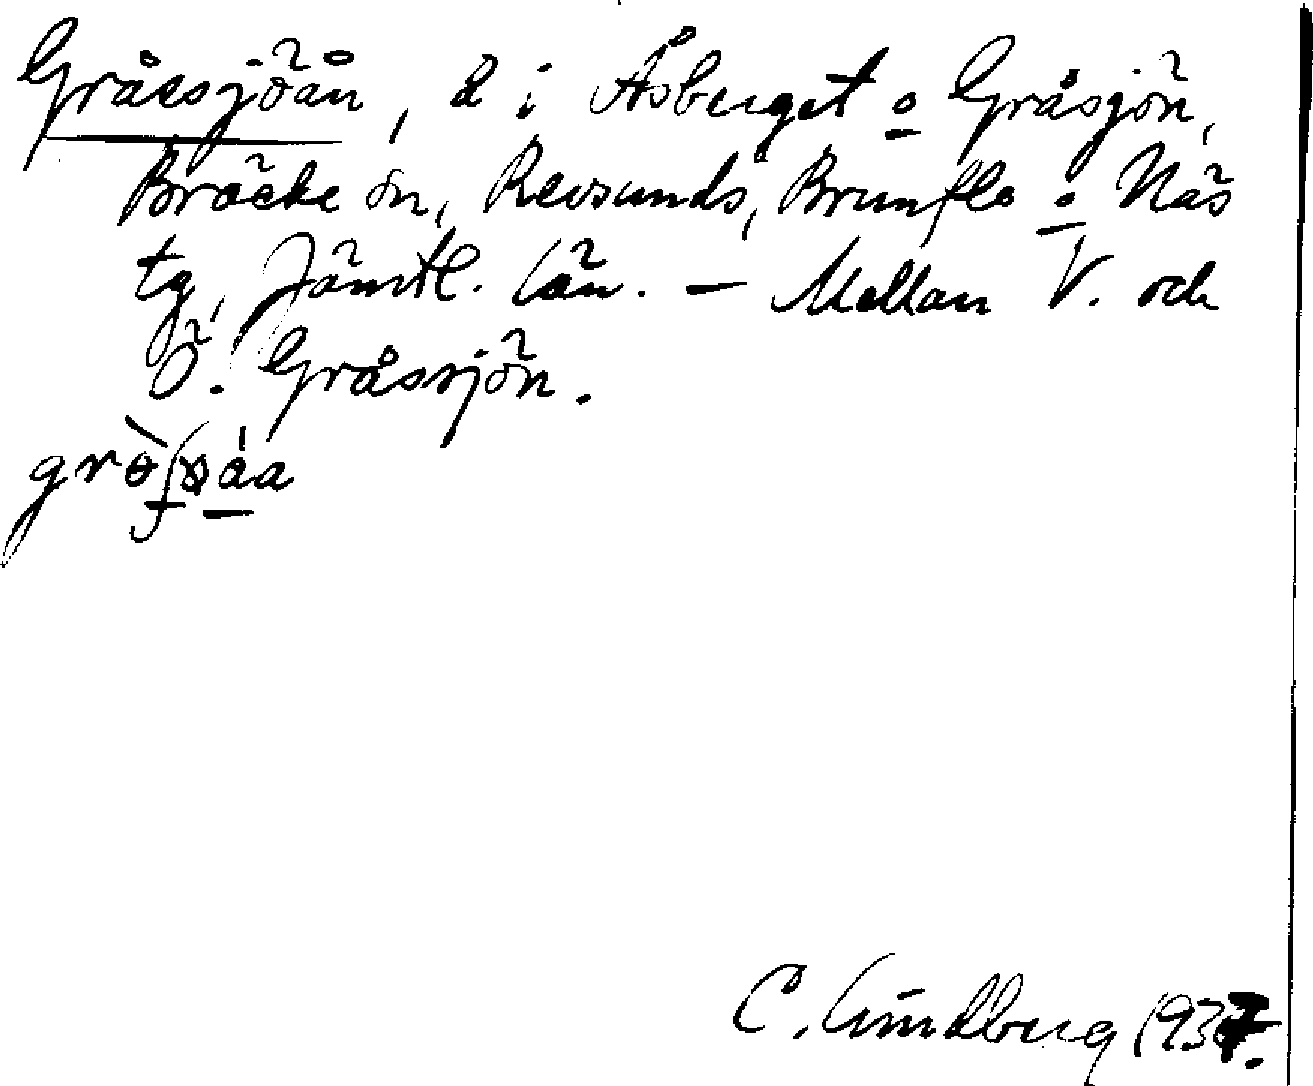 Gråssjöån, å i Åsberget o Gråsjön,
Bräcke sn, Revsunds, Brunflo o Näs
tg, Jämtl. län. – Mellan V. och
Ö. Gråssjön.
C. Lindberg 1937.